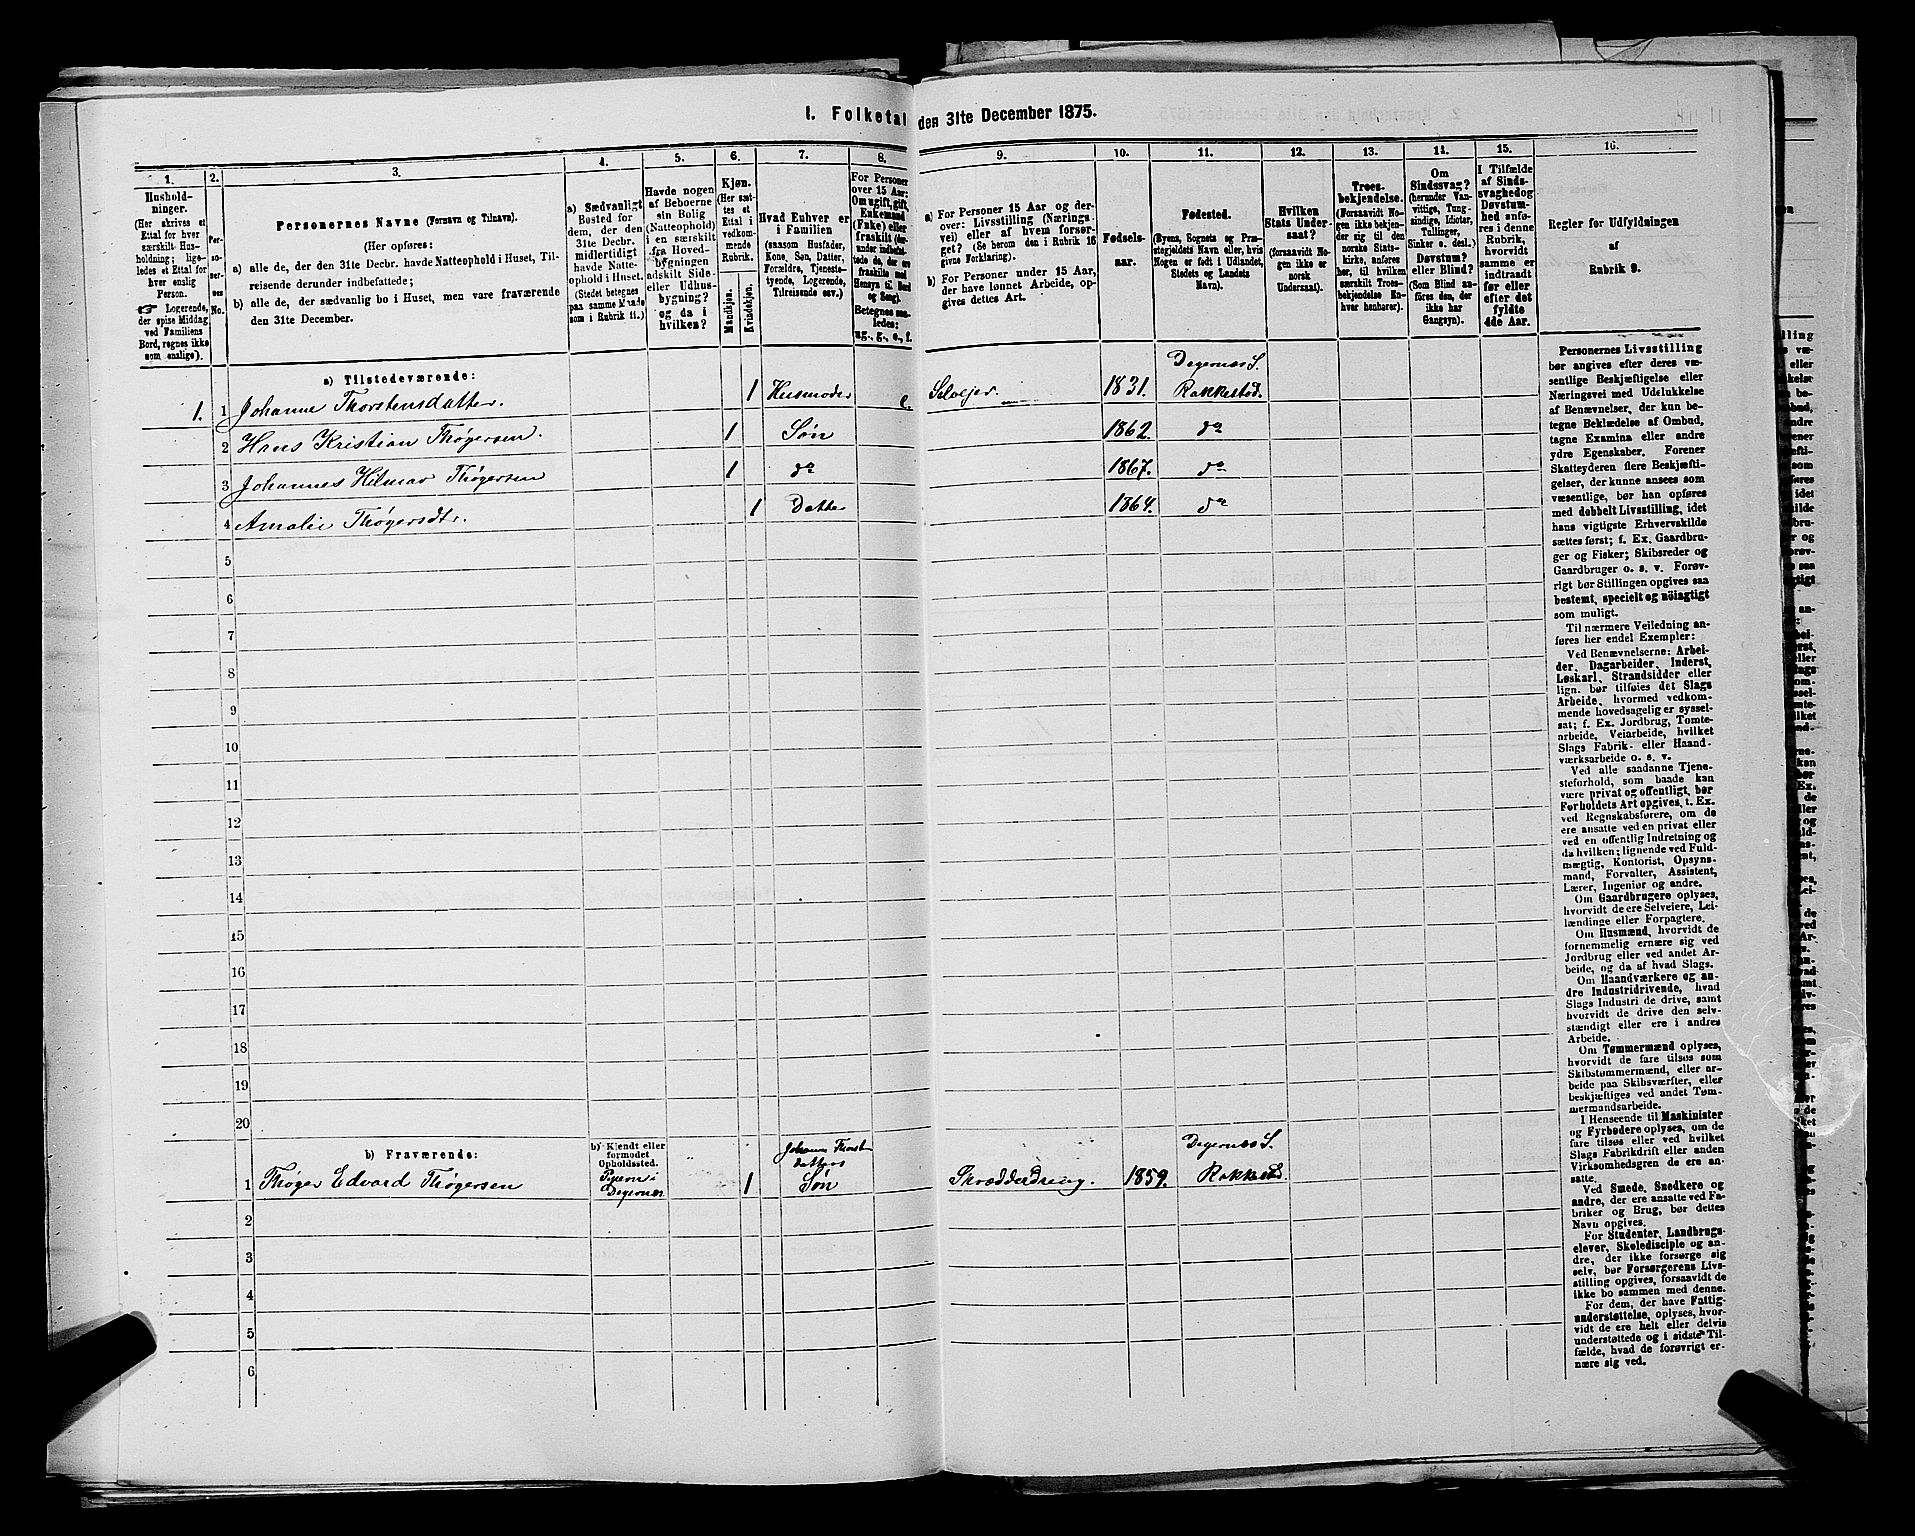 1. Folketal den 31te December 1875.
1.
Hushold-
ninger.
(Her skrives et
Ettal for hver
særskilt Hus-
holdning; lige-
ledes et Ettal for
hver enslig
Person.
Logerende,
der spise Middag
ved Familiens
Bord, regnes ikke
som enslige).
2.
No.
3.
Personernes Navne (Fornavn og Tilnavn).
(Her opføres:
a) alle de, der den 31te Decbr. havde Natteophold i Huset, Til-
reisende derunder indbefattede;
b) alle de, der sædvanlig bo i Huset, men vare fraværende
den 31te December.
4.
a) Sædvanligt
Bosted for
dem, der den
31te Decbr.
midlertidigt
havde Natte-
ophold i Huset.
(Stedet betegnes
paa samme Maade
som i Rubrik 11.)
5.
Havde nogen
af Beboerne
sin Bolig
(Natteophold)
i en særskilt
fra Hoved-
bygningen
adskilt Side-
eller Udhus-
bygning?
og da i
hvilken?
6.
Kjøn.
(Her sæt-
tes et
Ettal i
vedkom-
mende
Rubrik.
Mandkjøn.
Kvindekjøn.
7.
Hvad Enhver er
i Familien
(saasom Husfader,
Kone, Søn, Datter,
Forældre, Tjeneste-
tyende, Logerende,
Tilreisende osv.)
8.
For Personer
over 15 Aar:
Om ugift, gift,
Enkemand
(Enke) eller
fraskilt
Betegnes saa-
ledes:
ug., g., e., f.
9.
a) For Personer 15 Aar og der-
over: Livsstilling (Nærings-
vei) eller af hvem forsør-
get? (Se herom den i Rubrik 16
givne Forklaring).
b) For Personer under 15 Aar,
der have lønnet Arbeide, op-
gives dettes Art.
10.
Fødsels-
aar.
11.
Fødested.
(Byens, Sognets og Præ-
stegjeldets Navn eller, hvis
Nogen er født i Udlandet,
Stedets og Landets
Navn).
12.
Hvilken
Stats Under-
saat?
(forsaavidt No-
gen ikke er
norsk
Undersaat).
13.
Troes-
bekjendelse.
(Forsaavidt No-
gen ikke bekjen-
der sig til den
norske Stats-
kirke, anføres
her, til hvilken
særskilt Troes-
bekjendelse En-
hver henhører).
14.
Om
Sindssvag?
(herunder Van-
vittige, Tung-
sindige, Idioter,
Tullinger,
Sinker o. desl.)
Døvstum?
eller Blind?
(Som Blind an-
føres den, der
ikke har
Gangsyn).
15.
I Tilfælde
af Sinds-
svaghed og
Døvstum-
hed anfø-
res i denne
Rubrik,
hvorvidt
samme er
indtraadt
før eller
efter det
fyldte
4de Aar.
16.
Regler for Udfyldningen
af
Rubrik 9.
a) Tilstedeværende:
1. 1 Johanne Thorstensdatter. 1 Husmoder e. Selvejer. 1831. Degernæs S. Rakkestad.
2 Hans Kristian Thøgersen. 1 Søn 1862. do
3 Johannes Hilmar Thøgersen 1 do 1867. do
4 Amalie Thøgersdtr. 1 Datter 1864. do
5
6
7
8
9
10
11
12
13
14
15
16
17
18
19
20
b) Fraværende:
b) Kjendt eller
formodet
Opholdssted.
1 Thøger Edvard Thøgersen i Degernæs 1 Johanne Thorstensdatters Søn Skrædderdreng. 1859. Degernæs S. Rakkestad.
2
3
4
5
6
Personernes Livsstilling
bør angives efter deres væ-
sentlige Beskjæftigelse eller
Næringsvei med Udelukkelse
af Benævnelser, der kun be-
tegne Beklædelse af Ombud,
tagne Examina eller andre
ydre Egenskaber. Forener
Skatteyderen flere Beskjæfti-
gelser, der kunne ansees som
væsentlige, bør han opføres
med dobbelt Livsstilling, idet
hans vigtigste Erhvervskilde
sættes først; f. Ex. Gaardbru-
ger og Fisker; Skibsreder og
Gaardbruger o. s. v. Forøv-
rigt bør Stillingen opgives saa
bestemt, specielt og nøiagtigt
som muligt.
Til nærmere Veiledning an-
føres her endel Exempler:
Ved Benævnelserne: Arbei-
der, Dagarbeider, Inderst,
Løskarl, Strandsidder eller
lign. bør tilføies det Slags
Arbeide, hvormed vedkom-
mende hovedsagelig er syssel-
sat; f. Ex. Jordbrug, Tomte-
arbeide, Veiarbeide, hvilket
Slags Fabrik- eller Haand-
værksarbeide o. s. v.
Ved alle saadanne Tjene-
steforhold, som baade kan
være privat og offentligt, bør
Forholdets Art opgives, t. Ex.
ved Regnskabsførere, om de
ere ansatte ved en privat eller
ved en offentlig Indretning og
da hvilken; lignende ved Fuld-
mægtig, Kontorist, Opsyns-
mand, Forvalter, Assistent,
Lærer, Ingeniør og andre.
Om Gaardbrugere oplyses,
hvorvidt de ere Selveiere, Lei-
lændinge eller Forpagtere.
Om Husmænd, hvorvidt de
fornemmelig ernære sig ved
Jordbrug eller ved andet Ar-
beide, og da af hvad Slags.
Om Haandværkere og an-
dre Industridrivende, hvad
Slags Industri de drive, samt
hvorvidt de drive den selv-
stændigt eller ere i andres
Arbeide.
Om Tømmermænd oplyses,
hvorvidt de fare tilsøs som
Skibstømmermænd, eller ar-
beide paa Skibsværfter, eller
beskjæftiges ved andet Tøm-
mermandsarbeide.
I Henseende til Maskinister
og Fyrbødere oplyses, om de
fare tilsøs eller ved hvilket
Slags Fabrikdrift eller anden
Virksomhedsgren de ere an-
satte.
Ved Smede, Snedkere og
andre, der ere ansatte ved Fa-
briker og Brug, bør dettes
Navn opgives.
For Studenter, Landbrugs-
elever, Skoledisciple og an-
dre, der ikke forsørge sig
selv, bør Forsørgerens Livs-
stilling opgives, forsaavidt de
ikke bo sammen med denne.
For dem, der have Fattig-
understøttelse, oplyses, hvor-
vidt de ere helt eller delvis
understøttede og i sidste Til-
fælde, hvad de forøvrigt er-
nære sig ved.